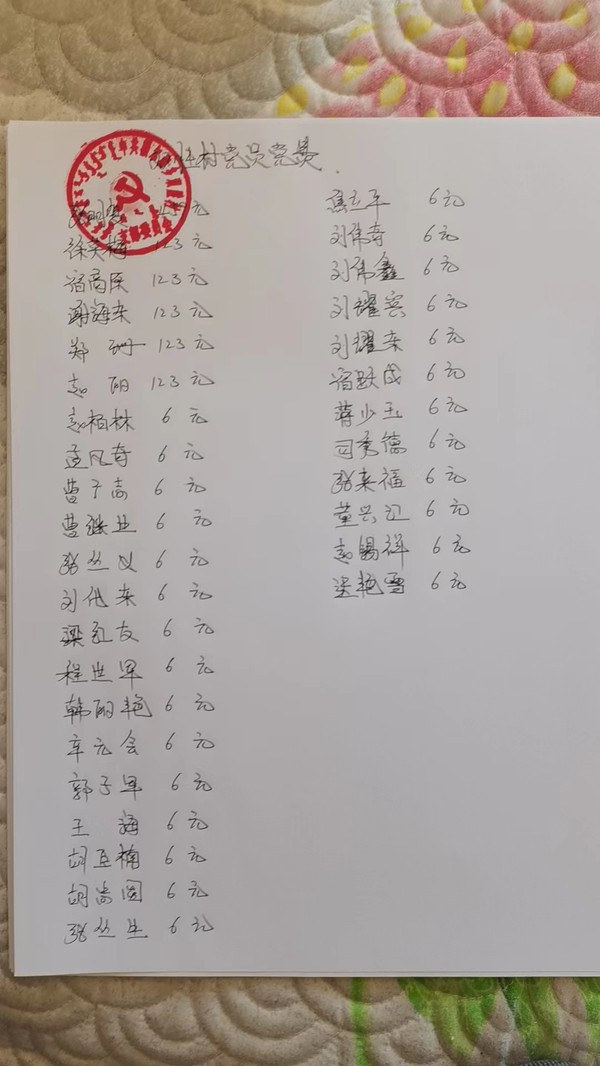 村党员党费
元
徐英梅 123元
宿商臣 123元
谢海东 123元
郑 珊 123元
赵 丽 123元
赵柏林 6元
孟凡奇 6元
曹子志 6元
曹继业 6元
张丛义 6元
刘代东 6元
梁红友 6元
程世军 6元
韩丽艳 6元
辛元会 6元
郭子军 6元
王 海 6元
胡亚楠 6元
胡尚国 6元
张丛生 6元
焦立平 6元
刘伟奇 6元
刘伟鑫 6元
刘耀宾 6元
刘耀东 6元
宿跃成 6元
蒋少玉 6元
司秀德 6元
张来福 6元
董兴江 6元
赵锡祥 6元
梁艳雪 6元